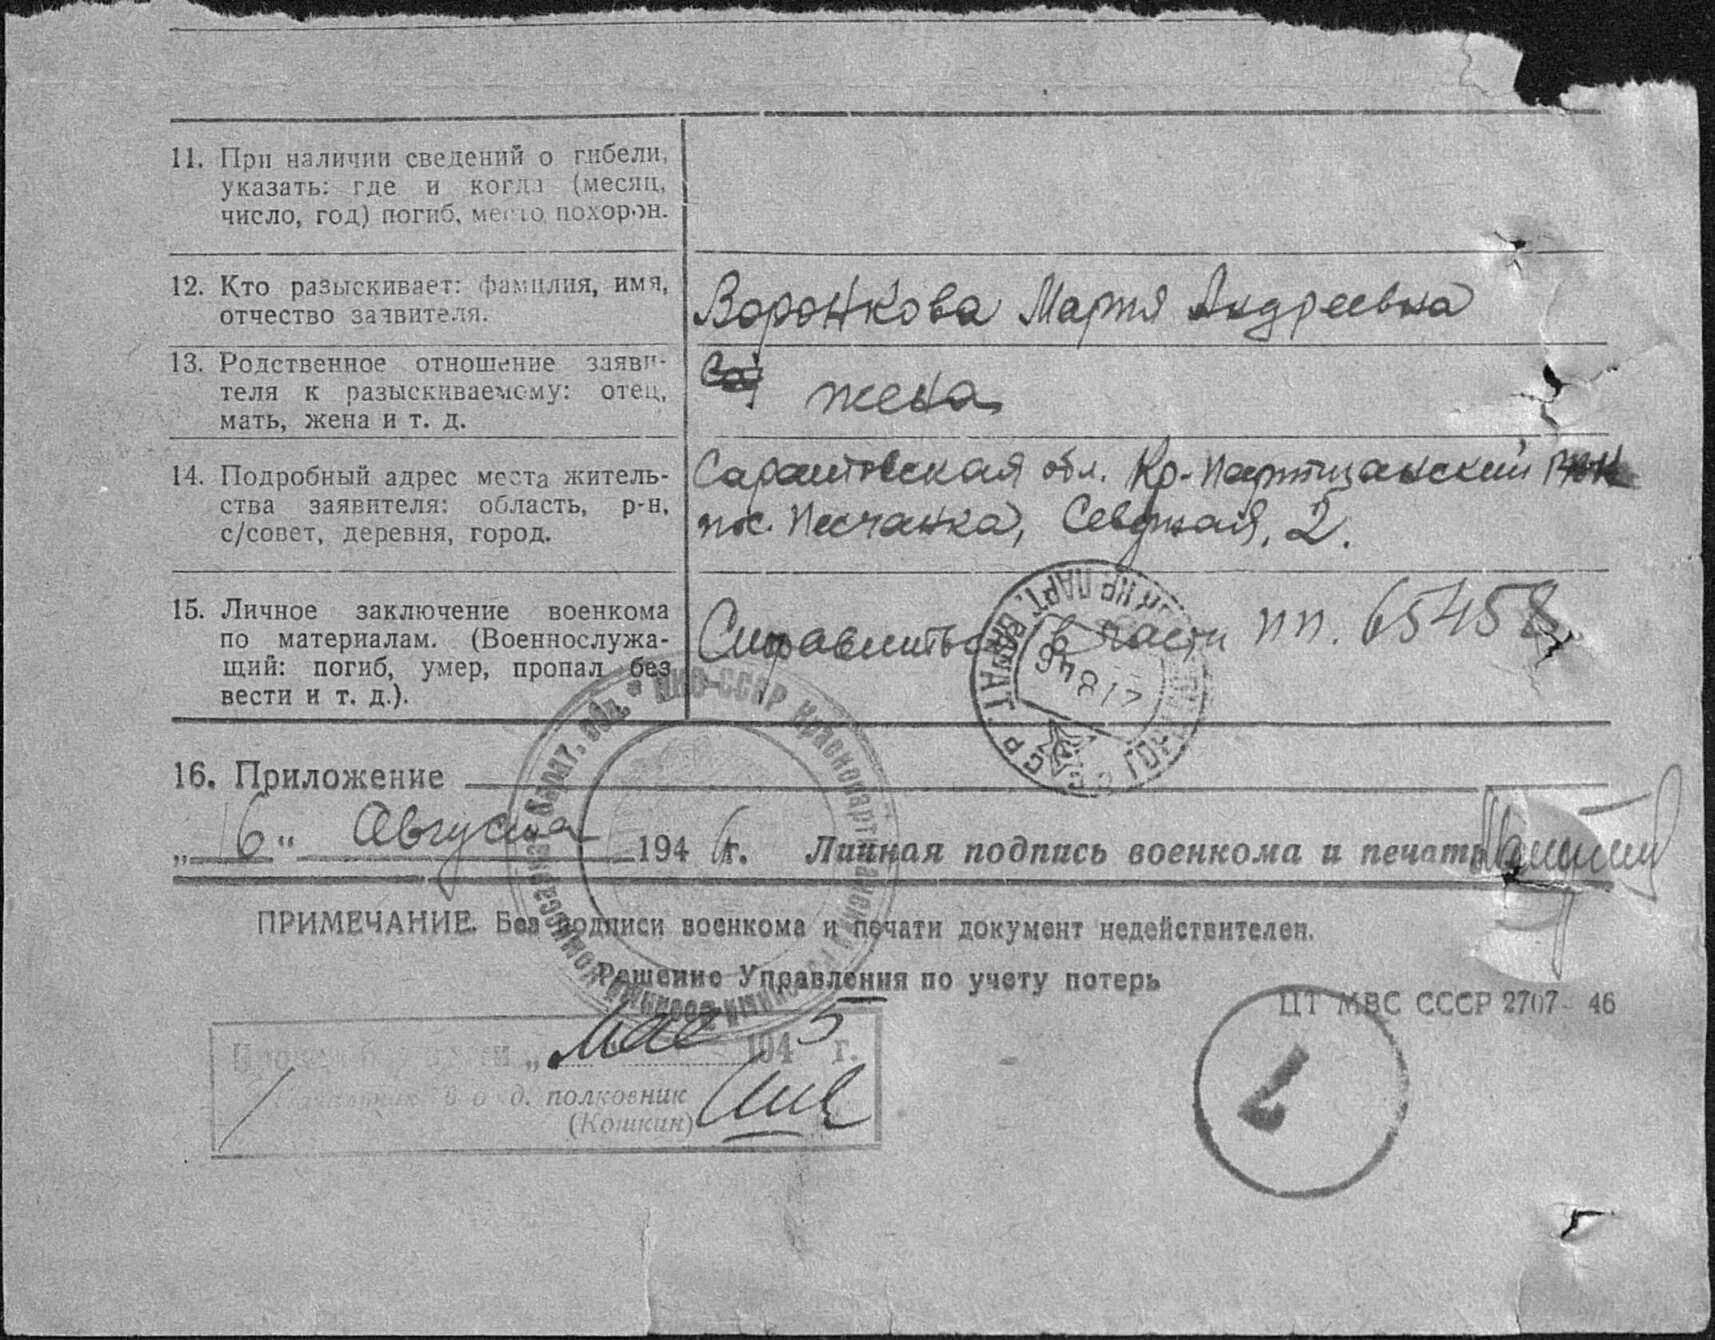 11. При наличии сведений о гибели,
указать: где и когда (месяц,
число, год) погиб, место похорон.
12. Кто разыскивает: фамилия, имя,
отчество заявителя.
Воронкова Мария Андреевна
13. Родственное отношение заяви-
теля к разыскиваемому: отец,
мать, жена и т. д.
жена
14. Подробный адрес места житель-
ства заявителя: область, р-н,
с/совет, деревня, город.
Саратовская обл. Кр-партизанский
пос. Песчанка, Северная, 2.
15. Личное заключение военкома
по материалам. (Военнослужа-
щий: погиб, умер, пропал без
вести и т. д.).
Справиться в части пп. 65458
16. Приложение
„16“ Августа 1946 г. Личная подпись военкома и печать
ПРИМЕЧАНИЕ. Без подписи военкома и печати документ недействителен.
Решение Управления по учету потерь
ЦТ МВС СССР 2707–46
194 5 г.
полковник
(Кошкин)
НКО-СССР Краснопартизанский
Сарат. обл.
КР ПАРТ.
САРАТ.
СССР
17 8 46